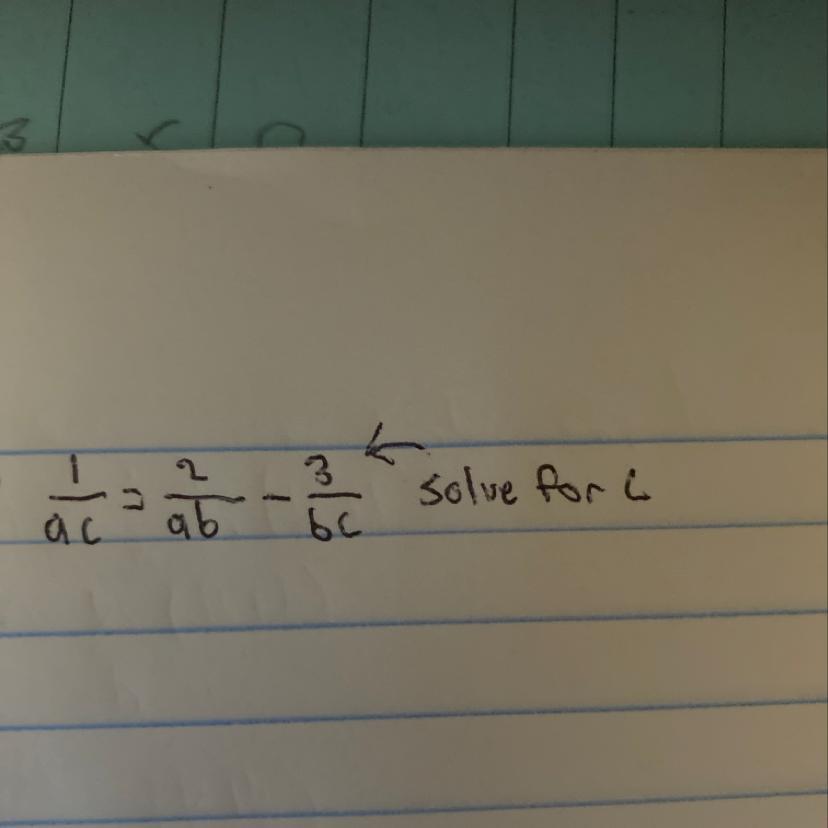 1/ac = 2/ab - 3/bc ← solve for c